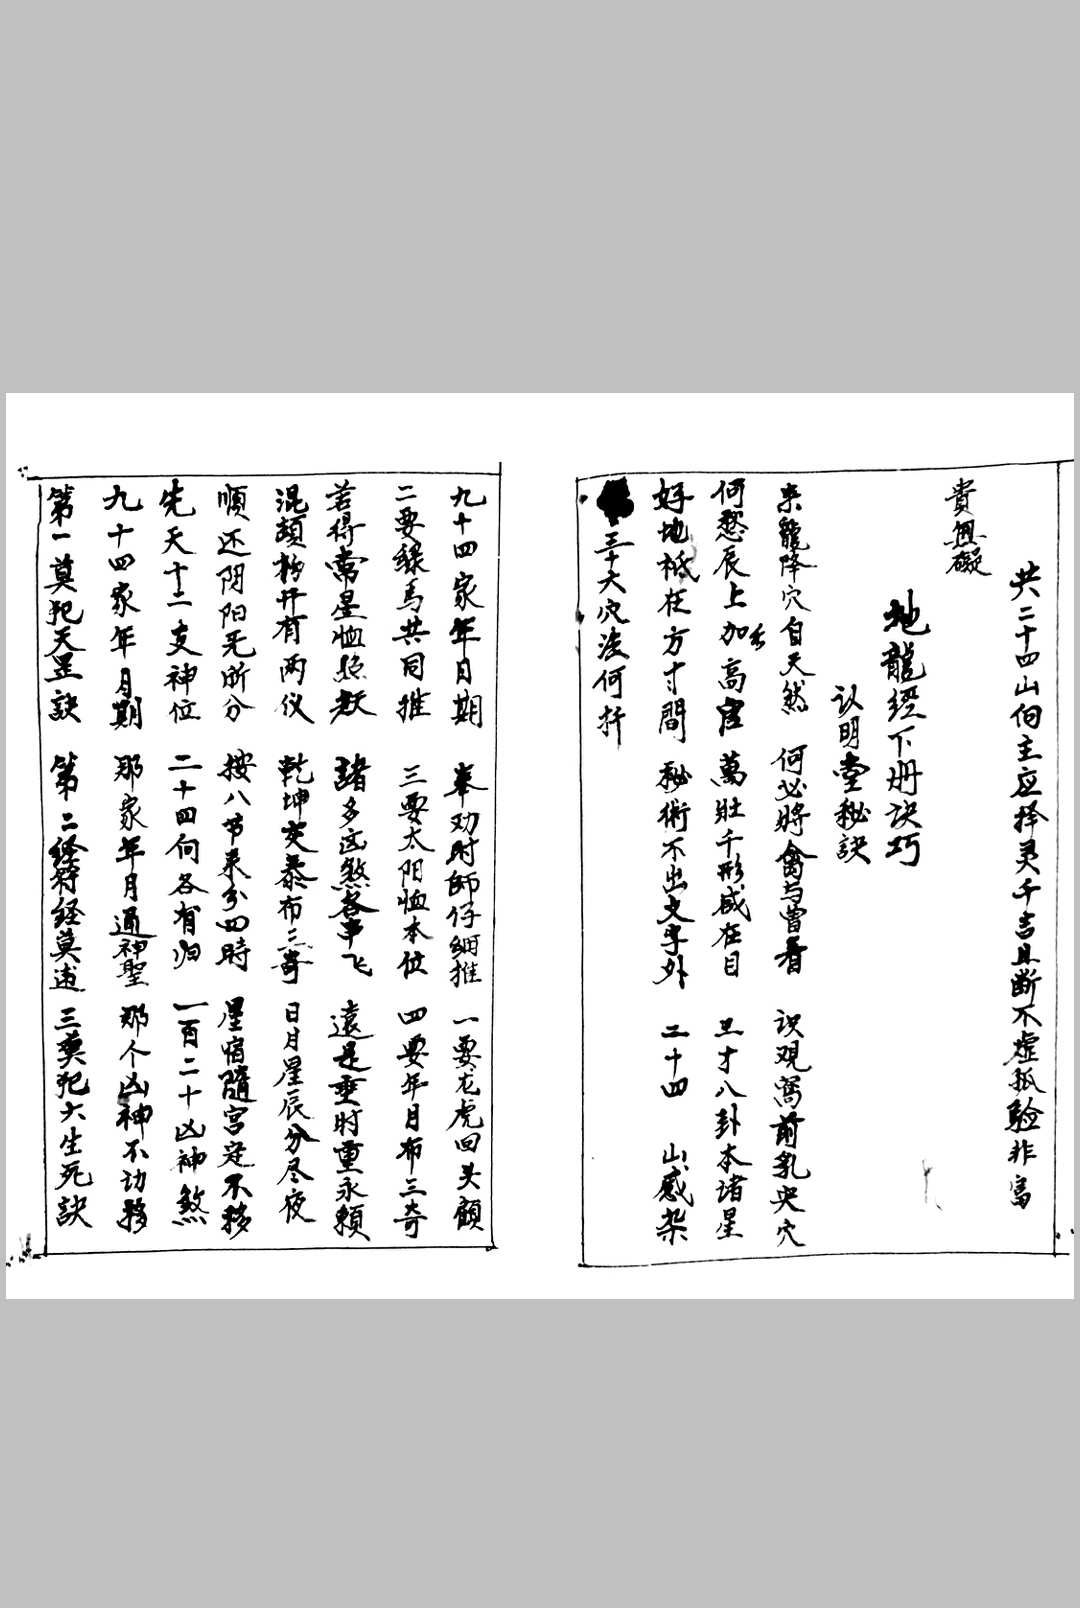 共二十四山向主应择灵千吉且断不虚孤验非富
貴無礙
地龍經下册诀巧
认明堂秘訣
来龍降穴自天然 何必將禽与曾看 识观寫前乳央穴
何愁辰上加高官 萬壯千形咸在目 三才八卦本诸星
好地祇在方寸間 秘術不出文字外 二十四 山感架
三十六穴法何扦
九十四家年日期 奉劝时師仔細推 一要龙虎回头顧
二要緑馬共同推 三要太阳恤本位 四要年月布三奇
若得常星恤照 諸多凶煞各事飞 遠是垂时重永賴
混頡初开有两仪 乾坤交泰布三奇 日月星辰分尽夜
順还阴阳无所分 按八节来分四時 星宿隨宫定不移
先天十二支神位 二十四向各有归 一百二十凶神煞
九十四家年月期 那家年月通神聖 那个凶神不功移
第一莫犯天罡訣 第二符经莫逃 三莫犯六生死訣